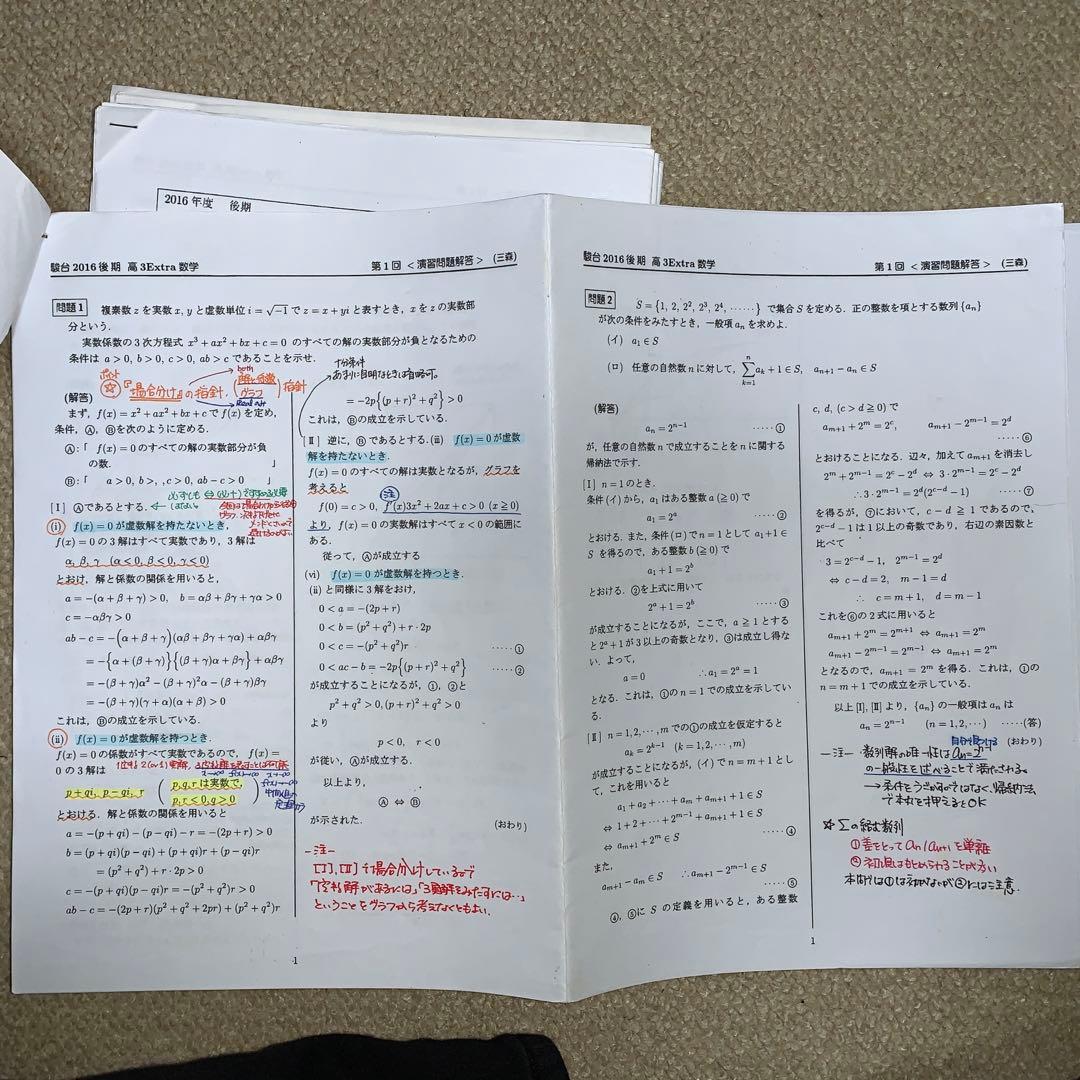 2016 年度 後期
駿台 2016 後期 高 3Extra 数学 第 1 回 ＜演習問題解答＞ (三森)
問題 1 複素数 z を実数 x, y と虚数単位 i = √−1 で z = x + yi と表すとき，x を z の実数部
分という．
実数係数の 3 次方程式 x³ + ax² + bx + c = 0 のすべての解の実数部分が負となるための
条件は a > 0, b > 0, c > 0, ab > c であることを示せ．
『場合分け』の指針．
both
解と係数
グラフ
指針
(解答)
まず，f(x) = x² + ax² + bx + c で f(x) を定め，
条件，Ⓐ，Ⓑ を次のように定める．
Ⓐ：「 f(x) = 0 のすべての解の実数部分が負
の数． 」
Ⓑ：「 a > 0, b >, , c > 0, ab − c > 0 」
[Ⅰ] Ⓐであるとする．
(i) f(x) = 0 が虚数解を持たないとき，
f(x) = 0 の 3 解はすべて実数であり，3 解は
α, β, γ (α < 0, β < 0, γ < 0)
とおけ，解と係数の関係を用いると，
a = −(α + β + γ) > 0, b = αβ + βγ + γα > 0
c = −αβγ > 0
ab − c = −(α + β + γ)(αβ + βγ + γα) + αβγ
= −{α + (β + γ)}{(β + γ)α + βγ} + αβγ
= −(β + γ)α² − (β + γ)²α − (β + γ)βγ
= −(β + γ)(γ + α)(α + β) > 0
これは，Ⓑの成立を示している．
(ii) f(x) = 0 が虚数解を持つとき．
f(x) = 0 の係数がすべて実数であるので，f(x) =
0 の 3 解は
p + qi, p − qi, r (p, q, r は実数で，
p, r < 0, q > 0)
とおける．解と係数の関係を用いると
a = −(p + qi) − (p − qi) − r = −(2p + r) > 0
b = (p + qi)(p − qi) + (p + qi)r + (p − qi)r
= (p² + q²) + r · 2p > 0
c = −(p + qi)(p − qi)r = −(p² + q²)r > 0
ab − c = −(2p + r)(p² + q² + 2pr) + (p² + q²)r
十分条件
あまりに自明なときは省略可。
= −2p{(p + r)² + q²} > 0
これは，Ⓑの成立を示している．
[Ⅱ] 逆に，Ⓑであるとする．(ii) f(x) = 0 が虚数
解を持たないとき．
f(x) = 0 のすべての解は実数となるが，グラフを
考えると
注
f(0) = c > 0, f′(x)3x² + 2ax + c > 0 (x ≧ 0)
より，f(x) = 0 の実数解はすべて x < 0 の範囲に
ある．
従って，Ⓐが成立する
(vi) f(x) = 0 が虚数解を持つとき．
(ii) と同様に 3 解をおけ，
0 < a = −(2p + r)
0 < b = (p² + q²) + r · 2p
0 < c = −(p² + q²)r ·····①
0 < ac − b = −2p{(p + r)² + q²} ·····②
が成立することになるが，①，②と
p² + q² > 0, (p + r)² + q² > 0
より
p < 0, r < 0
が従い，Ⓐが成立する．
以上より，
Ⓐ ⇔ Ⓑ
が示された． (おわり)
−注−
[Ⅰ], [Ⅱ] で場合分けしているので
ということをグラフから考えなくともよい．
1
駿台 2016 後期 高 3Extra 数学 第 1 回 ＜演習問題解答＞ (三森)
問題 2 S = {1, 2, 2², 2³, 2⁴, ······} で集合 S を定める．正の整数を項とする数列 {aₙ}
が次の条件をみたすとき，一般項 aₙ を求めよ．
(イ) a₁ ∈ S
(ロ) 任意の自然数 n に対して，∑_{k=1}^{n} aₖ + 1 ∈ S, aₙ₊₁ − aₙ ∈ S
(解答)
aₙ = 2ⁿ⁻¹ ·····①
が，任意の自然数 n で成立することを n に関する
帰納法で示す．
[Ⅰ] n = 1 のとき．
条件(イ)から，a₁ はある整数 a (≧ 0) で
a₁ = 2ᵃ ·····②
とおける．また，条件(ロ)で n = 1 として a₁ + 1 ∈
S を得るので，ある整数 b(≧ 0) で
a₁ + 1 = 2ᵇ
とおける．②を上式に用いて
2ᵃ + 1 = 2ᵇ ·····③
が成立することになるが，ここで，a ≧ 1 とする
と 2ᵃ + 1 が 3 以上の奇数となり，③は成立し得な
い．よって，
a = 0 ∴ a₁ = 2ᵃ = 1
となる．これは，①の n = 1 での成立を示してい
る．
[Ⅱ] n = 1, 2, ···, m での①の成立を仮定すると
aₖ = 2ᵏ⁻¹ (k = 1, 2, ···, m)
が成立することになるが，(イ)で n = m + 1 とし
て，これを用いると
a₁ + a₂ + ··· + aₘ + aₘ₊₁ + 1 ∈ S
⇔ 1 + 2 + ··· + 2ᵐ⁻¹ + aₘ₊₁ + 1 ∈ S
⇔ aₘ₊₁ + 2ᵐ ∈ S ·····④
また，
aₘ₊₁ − aₘ ∈ S ∴ aₘ₊₁ − 2ᵐ⁻¹ ∈ S
·····⑤
④，⑤に S の定義を用いると，ある整数
c, d, (c > d ≧ 0) で
aₘ₊₁ + 2ᵐ = 2ᶜ, aₘ₊₁ − 2ᵐ⁻¹ = 2ᵈ
·····⑥
とおけることになる．辺々，加えて aₘ₊₁ を消去し
2ᵐ + 2ᵐ⁻¹ = 2ᶜ − 2ᵈ ⇔ 3 · 2ᵐ⁻¹ = 2ᶜ − 2ᵈ
∴ 3 · 2ᵐ⁻¹ = 2ᵈ(2ᶜ⁻ᵈ − 1) ·····⑦
を得るが，⑦において，c − d ≧ 1 であるので，
2ᶜ⁻ᵈ − 1 は 1 以上の奇数であり，右辺の素因数と
比べて
3 = 2ᶜ⁻ᵈ − 1, 2ᵐ⁻¹ = 2ᵈ
⇔ c − d = 2, m − 1 = d
∴ c = m + 1, d = m − 1
これを⑥の 2 式に用いると
aₘ₊₁ + 2ᵐ = 2ᵐ⁺¹ ⇔ aₘ₊₁ = 2ᵐ
aₘ₊₁ − 2ᵐ⁻¹ = 2ᵐ⁻¹ ⇔ aₘ₊₁ = 2ᵐ
となるので，aₘ₊₁ = 2ᵐ を得る．これは，①の
n = m + 1 での成立を示している．
以上 [Ⅰ], [Ⅱ] より，{aₙ} の一般項は aₙ は
aₙ = 2ⁿ⁻¹ (n = 1, 2, ···) ·····(答)
(おわり)
−注− 数列解の唯一性は aₙ = 2ⁿ⁻¹
の一般性を述べることで満たされる。
→ 条件をうごかすのではなく、帰納法
で本丸を押えるとOK
☆ Σの絡む数列
① 差をとって aₙ, aₙ₊₁ を単離
② 初項はもとめられることが多い
本問では①は切れないが②には注意．
1